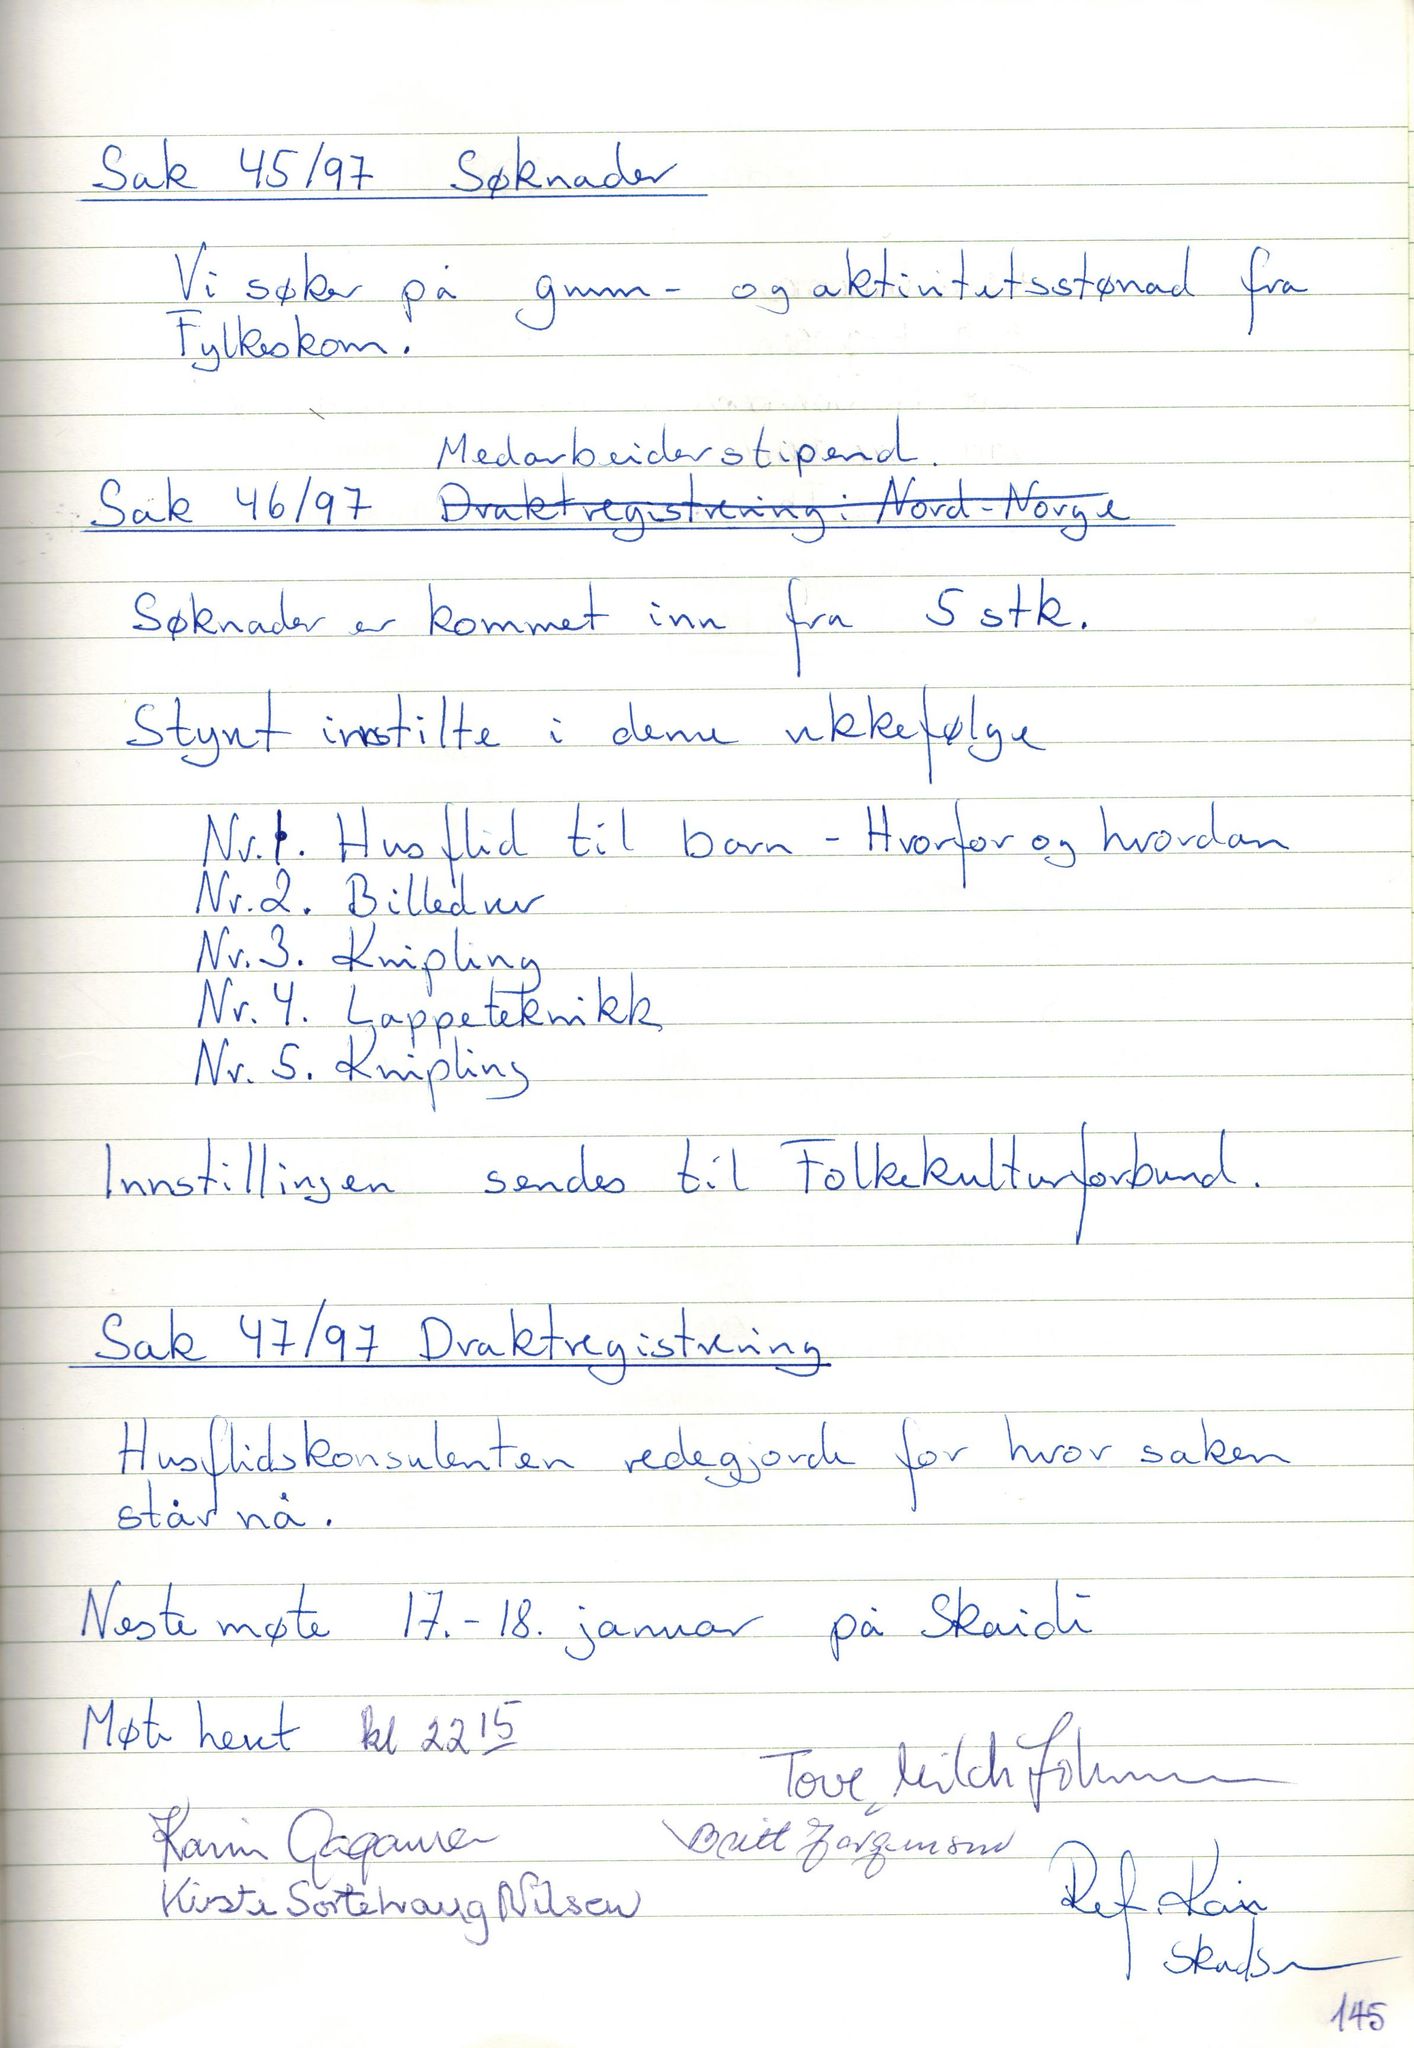 Sak 45/97 Søknader
Vi søker på grunn- og aktivitetsstønad fra
Fylkeskom.
Medarbeiderstipend.
Sak 46/97 Draktregistrering i Nord-Norge
Søknader er kommet inn fra 5 stk.
Styret innstilte i denne rekkefølge
Nr. 1. Husflid til barn - Hvorfor og hvordan
Nr. 2. Billedvev
Nr. 3. Knipling
Nr. 4. Lappeteknikk
Nr. 5. Knipling
Innstillingen sendes til Folkekulturforbund.
Sak 47/97 Draktregistrering
Husflidskonsulenten redegjorde for hvor saken
står nå.
Neste møte 17.-18. januar på Skaidi
Møte hevet kl 22 15
Tove Milch
Karin Britt Jørgensen
Kirste Sortehaug Nilsen Ref. Kari
145